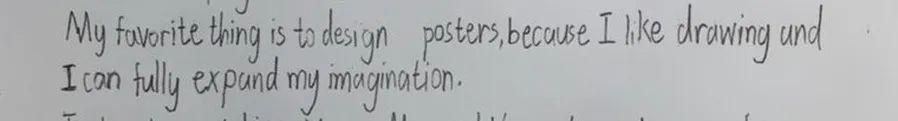 My favorite thing is to design posters, because I like drawing and
I can fully expand my imagination.